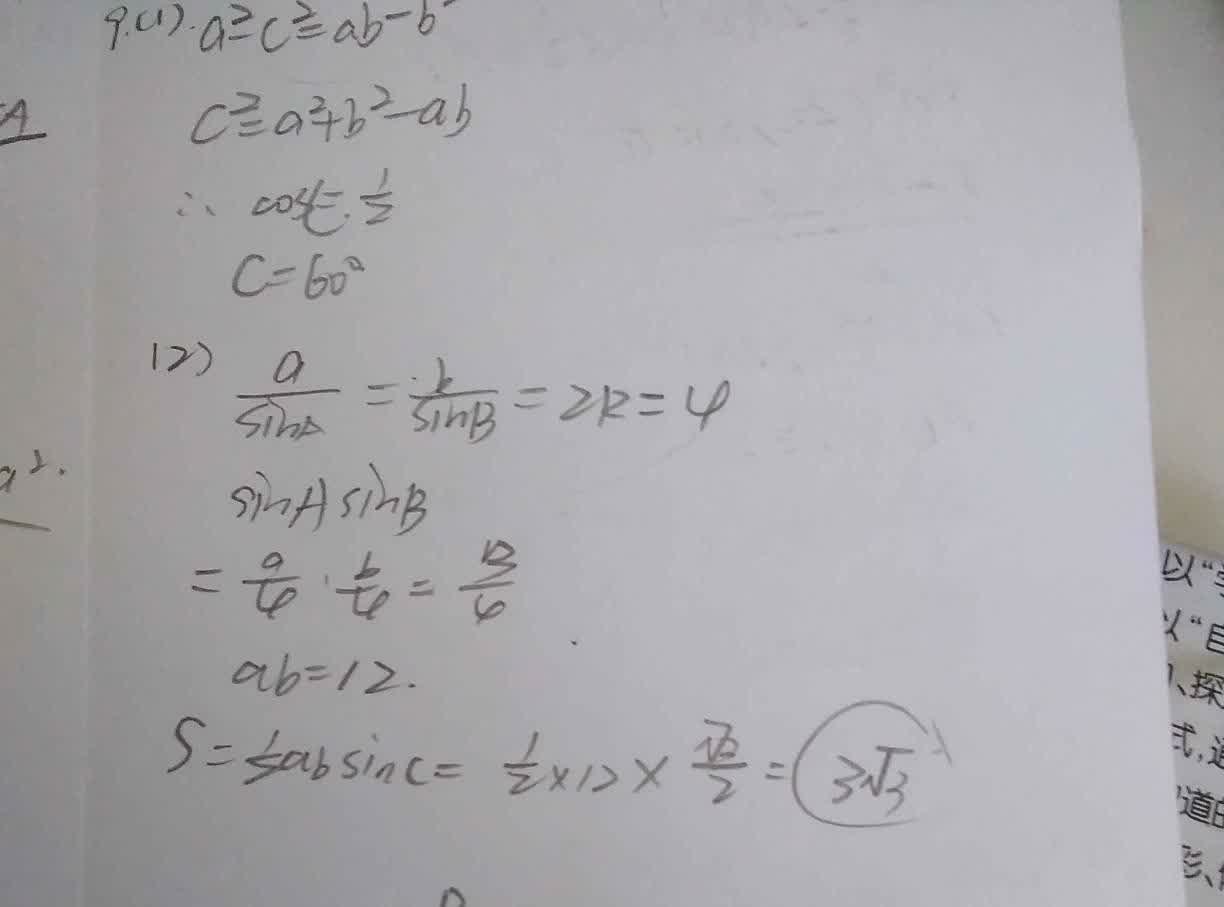 9.(1). a²=c²=ab-b
c²=a²+b²-ab
∴ cosC=1/2
C=60°
(2) a/sinA = b/sinB = 2R = 4
sinA sinB
= a/4 · b/4 = 3/4
ab=12.
S=1/2 ab sinC= 1/2 × 12 × √3/2 = 3√3
A
a².
以“
以“自
、探
式,道
道的
形、